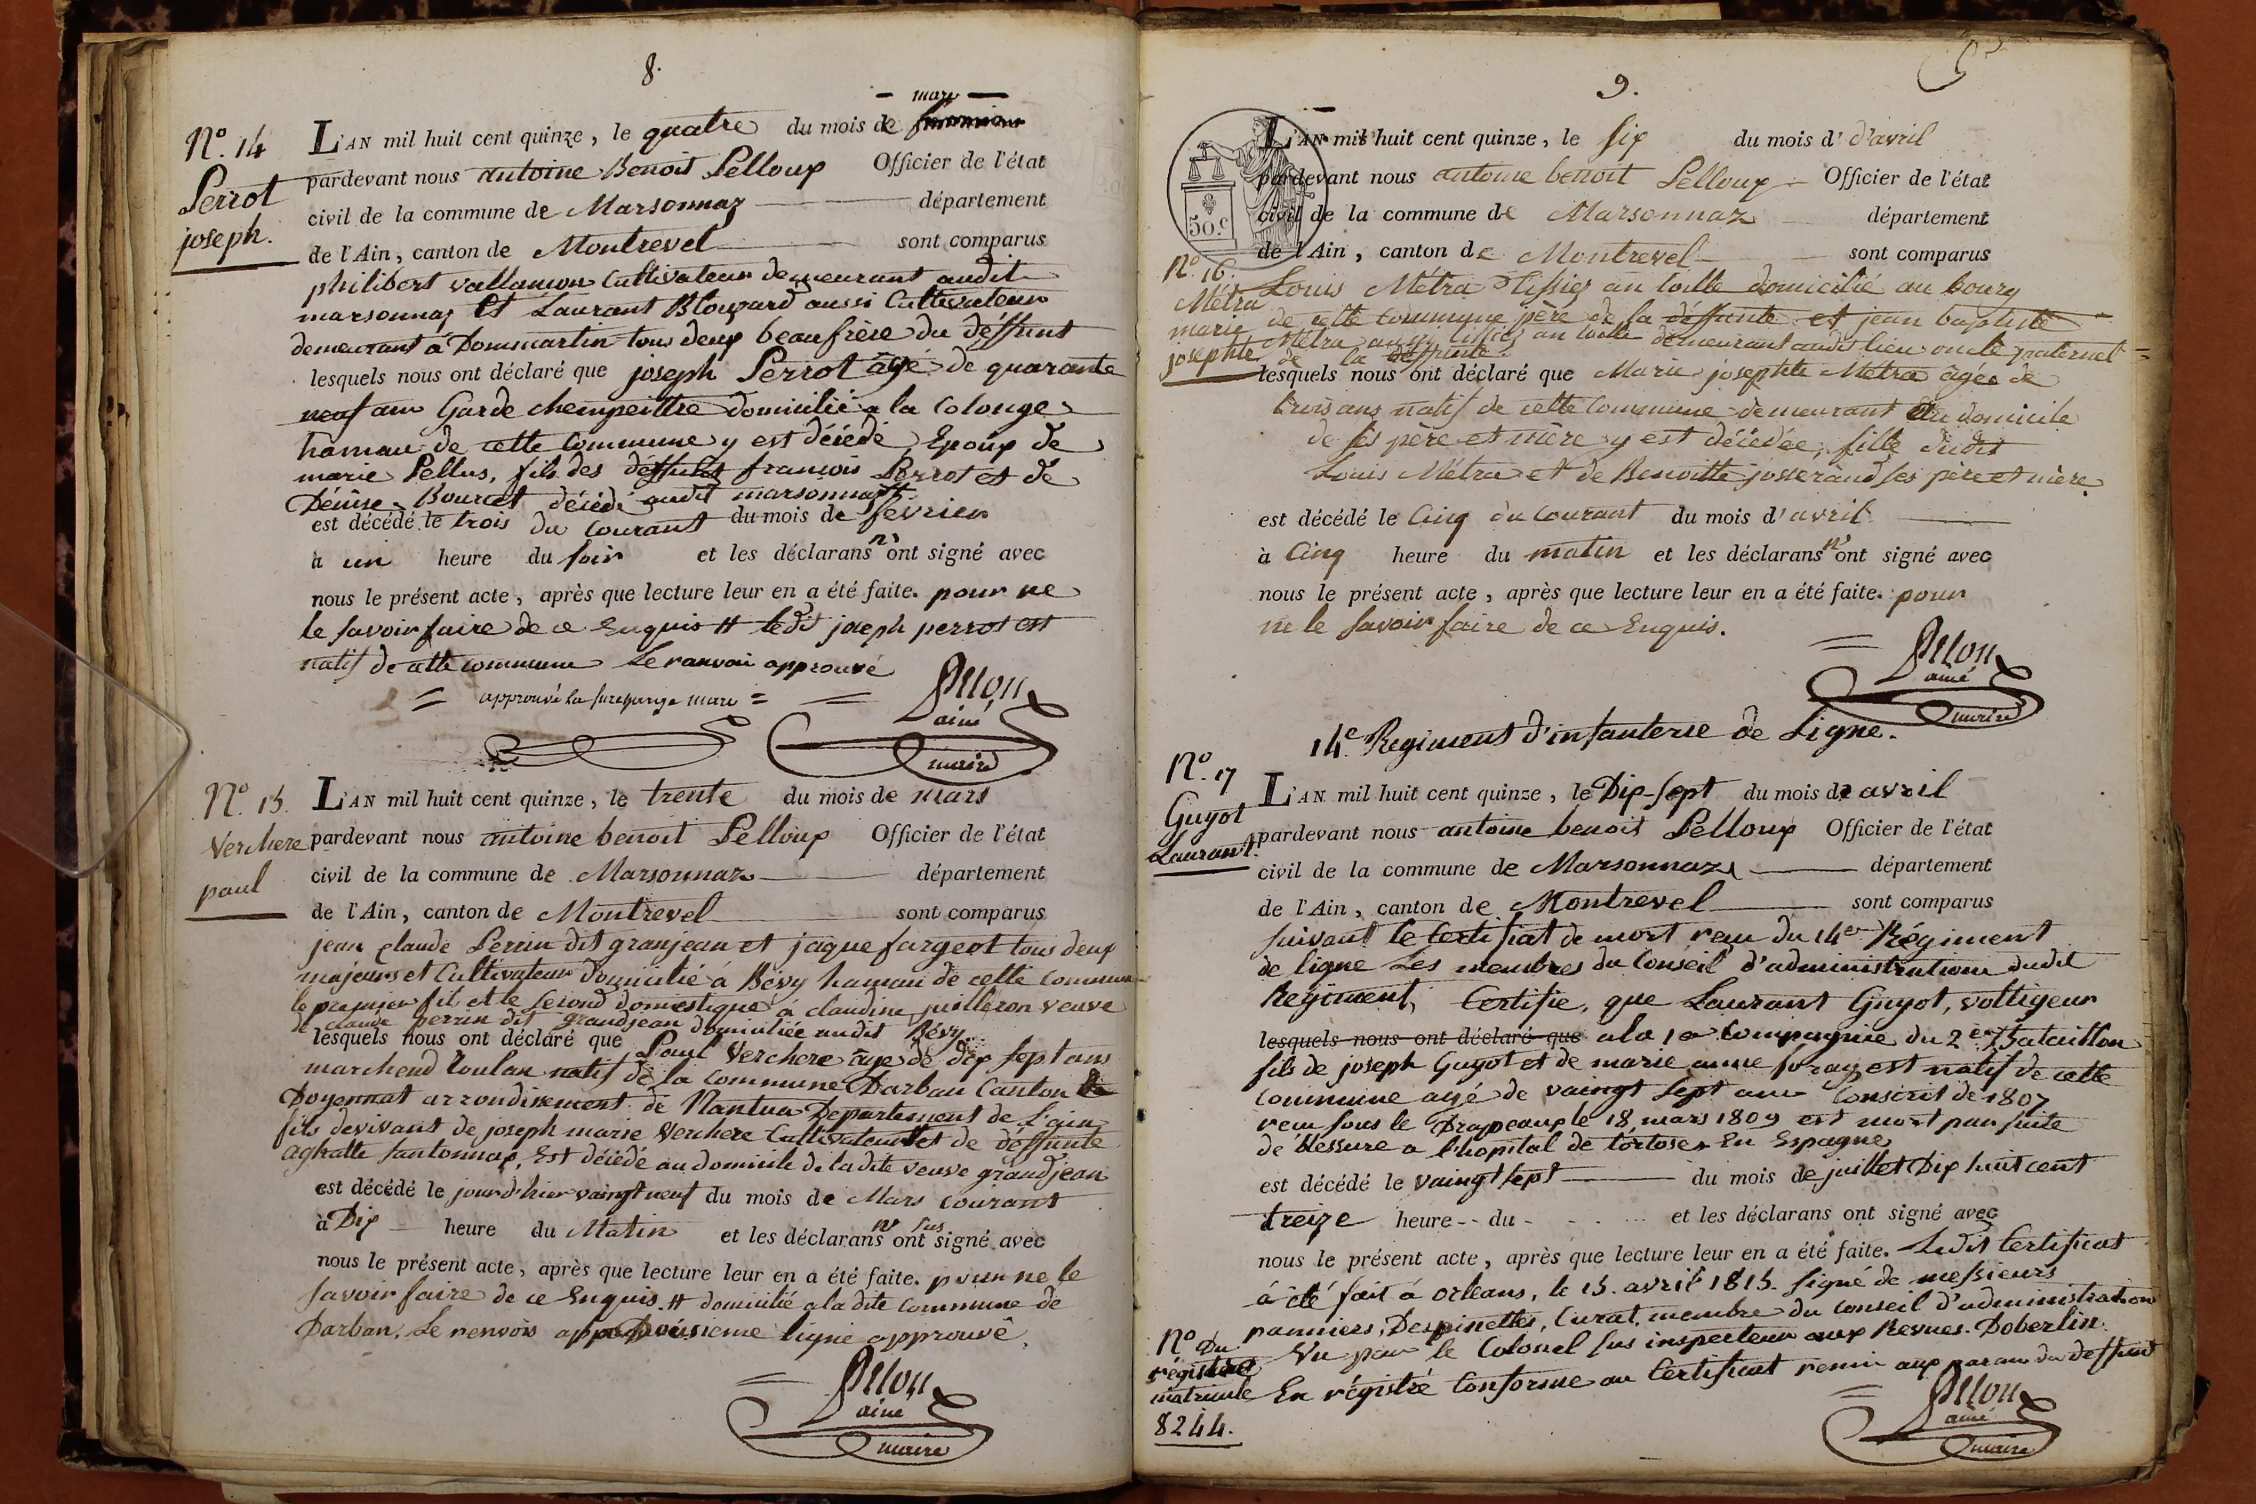 8.
N.° 14
Perrot
joseph.
mars
L'AN mil huit cent quinze, le quatre du mois de
pardevant nous antoine Benoit Pelloux Officier de l'état
civil de la commune de Marsonnaz département
de l'Ain, canton de Montrevel sont comparus
philibert vallancon Cultivateur demeurant audit
marsonnaz Et Laurant Blouzard aussi Cultivateur
demeurant a Dommartin tous deux beaufrère du déffunt
lesquels nous ont déclaré que joseph Perrot âgé de quarante
neuf ans Garde chempeittre domicilié a la Colonge
hamau de cette Commune y est décédé, Epoux de
marie Pellus, fils des déffunts francois Perrot et de
Dénise Bourcet décédé audit marsonnas
est décédé le trois du Courant du mois de février
à un heure du soir et les déclarans n'ont signé avec
nous le présent acte, après que lecture leur en a été faite. pour ne
le savoir faire de ce Enquis # ledit joseph perrot est
natif de cette commune Le ranvoi approuvé
= approuvé la surcharge mars =
Pllon
ainé
maire
N.° 15.
Verchere
paul
L'AN mil huit cent quinze, le trente du mois de mars
pardevant nous antoine benoit Pelloux Officier de l'état
civil de la commune de Marsonnaz département
de l'Ain, canton de Montrevel sont comparus
jean claude Perrin dit granjean et jaque fargeot tous deux
majeurs et Cultivateur domicilié á Bévy hamau de cette Commune
le premier fils et le second domestique á claudine juilleron veuve
de claude perrin dit grandjean domiciliée audit Bévy
lesquels nous ont déclaré que Paul Verchere âge de dix sept ans
marchend Roulan natif de la Commune Darban Canton
Doyonnat arrondissement de Nantua Departement de l'ain
fils devivant de joseph marie Verchere Cultivateur et de déffunte
aghatte santonnax, Est décédé au domicile de ladite veuve grandjean
est décédé le jourd'hier vaingt neuf du mois de Mars courant
à Dix heure du Matin et les déclarans n'ont sus signé avec
nous le présent acte, après que lecture leur en a été faite. pour ne le
savoir faire de ce Enquis # domicilié a la dite commune de
Darban. Le renvois a ligne approuvé
Pllon
ainé
maire
9.
50.c
L'AN mil huit cent quinze, le six du mois d' d'avril
pardevant nous antoine benoit Pelloux Officier de l'état
civil de la commune de Marsonnaz département
de l'Ain, canton de Montrevel sont comparus
N.° 16.
Métra
marie
josephte
Louis Métra Tissier an toille domicilié au bourg
de cette Commune père de la déffunte et jean baptiste
Métra aussi tissier an toille demeurant audit lieu oncle paternel
de la déffunte
lesquels nous ont déclaré que Marie josephte Métra âgée de
trois ans natif de cette Commune demeurant au domicile
de ses père et mère y est décédée, fille dudit
Louis Métra et de Benoitte josserand ses père et mère.
est décédé le Cinq du Courant du mois d'avril
à Cinq heure du matin et les déclarans n'ont signé avec
nous le présent acte, après que lecture leur en a été faite. pour
ne le savoir faire de ce Enquis.
Pllon
ainé
maire
14e. Regiment d'infanterie de Ligne.
N.° 17
Guyot
Laurant.
L'AN mil huit cent quinze, le Dix-sept du mois de avril
pardevant nous antoine benoit Pelloux Officier de l'état
civil de la commune de Marsonnaz département
de l'Ain, canton de Montrevel sont comparus
suivant le Certifiat de mort reçu du 14e Régiment
de ligne Les membres du Conseil d'administration dudit
Regiment, Certifie, que Laurant Guyot, voltigeur
lesquels nous ont déclaré que a la 1e Compagnie du 2e Bataillon
fils de joseph Guyot et de marie anne foray est natif de cette
Commune agé de vaingt sept ans Conscrit de 1807
reçu sous le Drapeaux le 18 mars 1809 est mort par suite
de blessure a l'hopital de tortose En Espagne
est décédé le vaingt sept du mois de juillet Dix huit cent
treize heure du et les déclarans ont signé avec
nous le présent acte, après que lecture leur en a été faite. Ledit Certificat
á été fait á orléans, le 15. avril 1815. signé de messieurs
panniers, Despinettes, Curat, membre du Conseil d'administration
Vu par le Colonel sus inspecteur aux Revues. Doberlin.
En régistré Conforme au Certificat remis aux parans du deffunt
N.° du
régistre
matricule
8244.
Pllon
ainé
maire